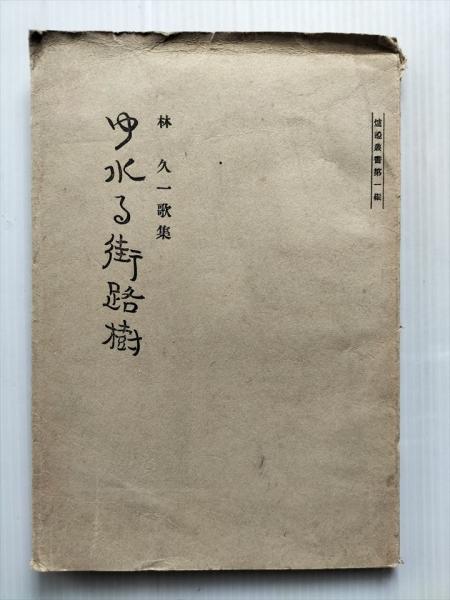 叢書第一輯
林 久一歌集
ゆれる街路樹